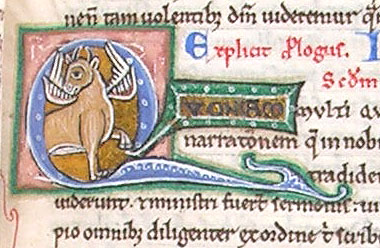 nen̄ tam uolentib; dm̄ uideremur
Explicit Plogus.
Scdm̄
QVONIAM multi
narratıonem q̄ in nobi
tradider
uiderunt. & ministri fuert̄ sermonis
pio omnib; diligenter ex ordine t̄ scrib